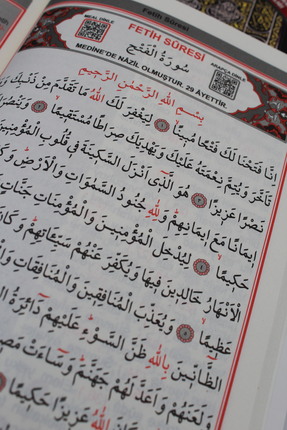 Fetih Sûresi
MEAL DİNLE
FETİH SÛRESİ
ARAPÇA DİNLE
سُورَةُ الْفَتْحِ
MEDİNE'DE NAZİL OLMUŞTUR. 29 AYETTİR.
بِسْمِ اللّٰهِ الرَّحْمٰنِ الرَّحِيمِ
اِنَّا فَتَحْنَا لَكَ فَتْحًا مُبِينًا ﴿١﴾ لِيَغْفِرَ لَكَ اللّٰهُ مَا تَقَدَّمَ مِنْ ذَنْبِكَ
تَاَخَّرَ وَيُتِمَّ نِعْمَتَهُ عَلَيْكَ وَيَهْدِيَكَ صِرَاطًا مُسْتَقِيمًا ﴿٢﴾ وَيَنْصُرَكَ
نَصْرًا عَزِيزًا ﴿٣﴾ هُوَ الَّذِٓى اَنْزَلَ السَّكِينَةَ فِى قُلُوبِ الْمُؤْمِنِينَ
اِيمَانًا مَعَ اِيمَانِهِمْ وَلِلّٰهِ جُنُودُ السَّمٰوَاتِ وَالْاَرْضِ
حَكِيمًا ﴿٤﴾ لِيُدْخِلَ الْمُؤْمِنِينَ وَالْمُؤْمِنَاتِ جَنَّاتٍ
الْاَنْهَارُ خَالِدِينَ فِيهَا وَيُكَفِّرَ عَنْهُمْ سَيِّـَٔاتِهِمْ وَكَانَ
عَظِيمًا ﴿٥﴾ وَيُعَذِّبَ الْمُنَافِقِينَ وَالْمُنَافِقَاتِ
الظَّٓانِّينَ بِاللّٰهِ ظَنَّ السَّوْءِ عَلَيْهِمْ دَٓائِرَةُ
وَلَعَنَهُمْ وَاَعَدَّ لَهُمْ جَهَنَّمَ وَسَٓاءَتْ
اللّٰهُ عَزِيزًا حَكِيمًا